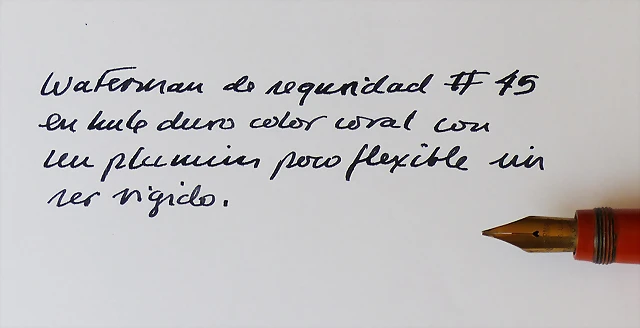 Waterman de seguridad # 45
en hule duro color coral con
un plumin poco flexible sin
ser rigido.